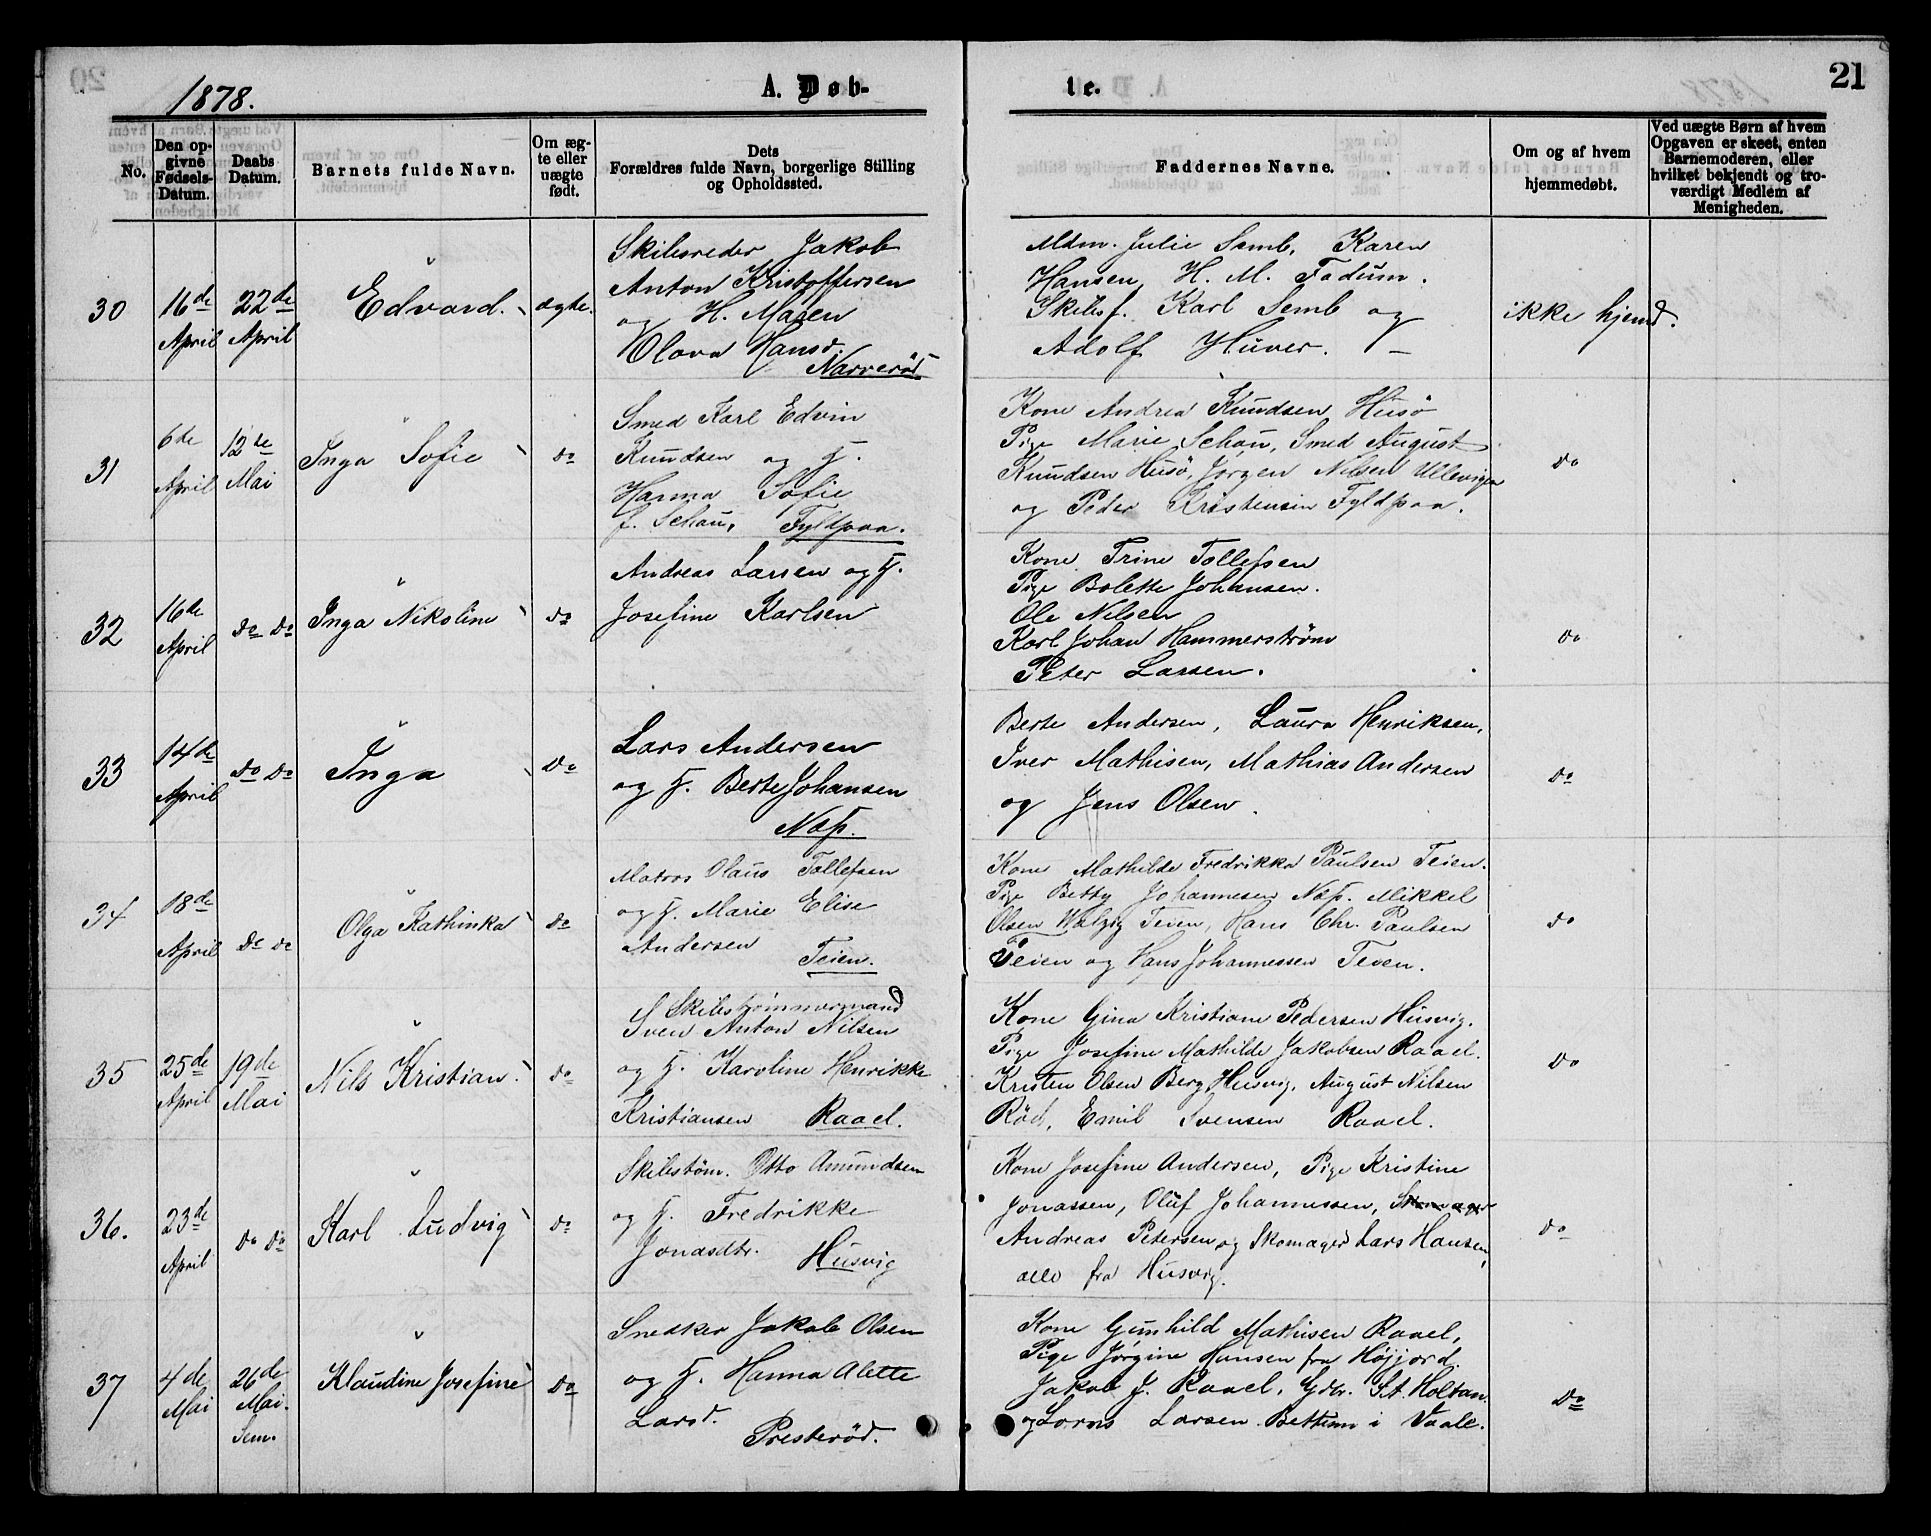 1878.
A. Døb-
te.
21
No.
Den op-
givne
Fødsels-
Datum.
Daabs
Datum.
Barnets fulde Navn.
Om æg-
te eller
uægte
født.
Dets
Forældres fulde Navn, borgerlige Stilling
og Opholdssted.
Faddernes Navne.
Om og af hvem
hjemmedøbt.
Ved uægte Børn af hvem
Opgaven er skeet, enten
Barnemoderen, eller
hvilket bekjendt og tro-
værdigt Medlem af
Menigheden.
30
16de
April
22de
April
Edvard.
ægte.
Skibsreder Jakob
Anton Kristoffersen
og H. Maren
Olava Hansd.
Narverød
Mdm. Julie Semb, Karen
Hansen, H. M. Fadum.
Skibsf. Karl Semb og
Adolf Huver. —
ikke hjemd.
31
6de
April
12te
Mai
Inga Sofie
do
Smed Karl Edvin
Knudsen og H.
Hanna Sofie
f. Schau, Fyldpaa.
Kone Andrea Knudsen Husö
Pige Marie Schau, Smed August
Knudsen Husö, Jørgen Nilsen Ullevigen
og Peder Kristensen Fyldpaa.
do
32
16de
April
do do
Inga Nikoline
do
Andreas Larsen og H.
Josefine Karlsen
Kone Trine Tollefsen
Pige Bolette Johansen.
Ole Nilsen
Karl Johan Hammerstrøm
Peter Larsen.
do
33
14de
April
do do
Inga
do
Lars Andersen
og H. Berte Johansen
Næs.
Berte Andersen, Laura Henriksen,
Iver Mathisen, Mathias Andersen
og Jens Olsen.
do
34
18de
April
do do
Olga Kathinka
do
Matros Olaus Tollefsen
og H. Marie Elise
Andersen
Teien.
Kone Mathilde Fredrikka Paulsen Teien.
Pige Betty Johannesen Næs. Mikkel
Olsen Teien, Hans Chr. Paulsen
Teien og Hans Johannessen Teien.
do
35
25de
April
19de
Mai
Nils Kristian
do
Skibstømmermand
Sven Anton Nilsen
og H. Karoline Henrikke
Kristiansen Raael.
Kone Gina Kristiane Pedersen Husvig.
Pige Josefine Mathilde Jakobsen Raael.
Kristen Olsen Berg Husvig, August Nilsen
Rød, Emil Svensen Raael.
do
36.
23de
April
do do
Karl Ludvig
do
Skibstöm. Otto Amundsen
og H. Fredrikke
Jonasdtr. Husvig
Kone Josefine Andersen, Pige Kristine
Jonassen, Oluf Johannessen,
Andreas Petersen og Skomager Lars Hansen,
alle fra Husvig.
do
37
4de
Mai
26de
Mai.
Sem.
Klaudine Josefine
do
Snedker Jakob Olsen
og H. Hanna Alette
Larsd.
Presterød.
Kone Gunhild Mathisen Raael,
Pige Jørgine Hansen fra Højjord.
Jakob J. Raael, Gdbr. St. Holtan
og Larsen i Vaale.
do